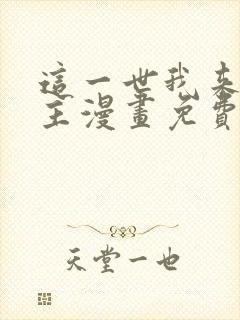 這一世我來
主漫畫免費
天堂一也